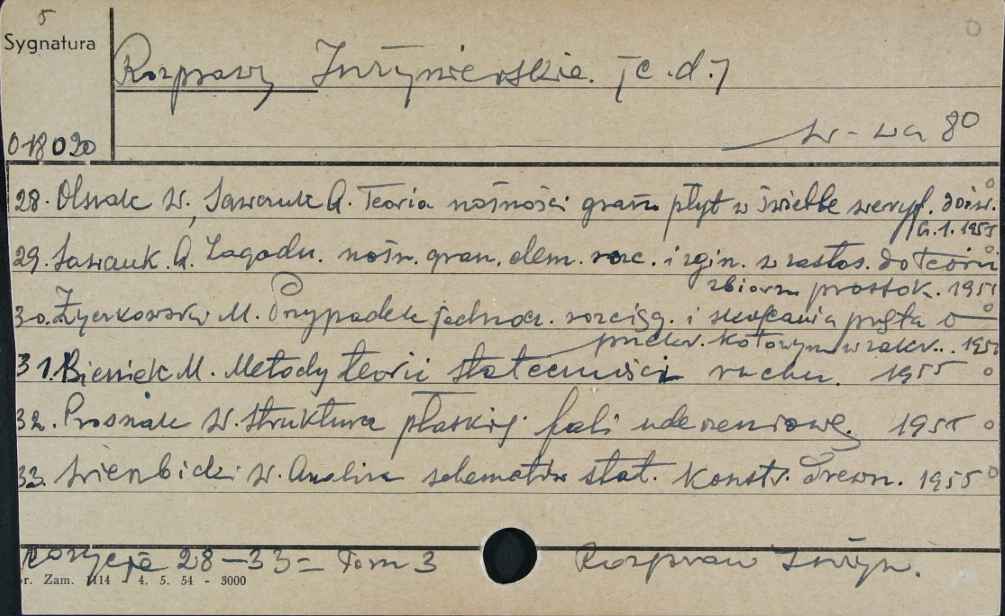 5
Sygnatura
Rozprawy Inżynierskie. [c.d.]
0
W-wa 80
018020
28. Olszak W., Sawczuk A. Teoria nośności gran. płyt w świetle weryf. dośw.
G.1. 1955
29. Sawczuk. A. Zagadn. nośn. gran. elem. rozc. i zgin. z zastos. do teorii
zbiorn. prostok. 1955
30. Życzkowski M. Przypadek jednocz. rozciąg. i skręcania pręta o
przekr. kołowym w zakr. . . 195
31. Bieniek M. Metody teorii stateczności ruchu. 1955 0
32. Prosnak W. Struktura płaskiej fali uderzeniowej. 1955 0
33. Wierzbicki W. Analiza schematów stat. konstr. drewn. 1955 0
Pozycje 28-33 = Tom 3 Rozpraw Inżyn.
r. Zam. 1114 4. 5. 54 - 3000